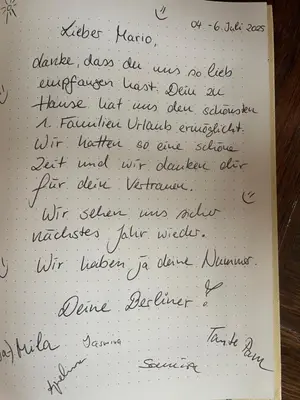 04 - 6. Juli 2025
Lieber Mario,
danke, dass du uns so lieb
empfangen hast. Dein zu
Hause hat uns den schönsten
1. Familien Urlaub ermöglicht.
Wir hatten so eine schöne
Zeit und wir danken dir
für dein Vertrauen.
Wir sehen uns sicher
nächstes Jahr wieder.
Wir haben ja deine Nummer.
Deine Berliner!
Mila
Tante